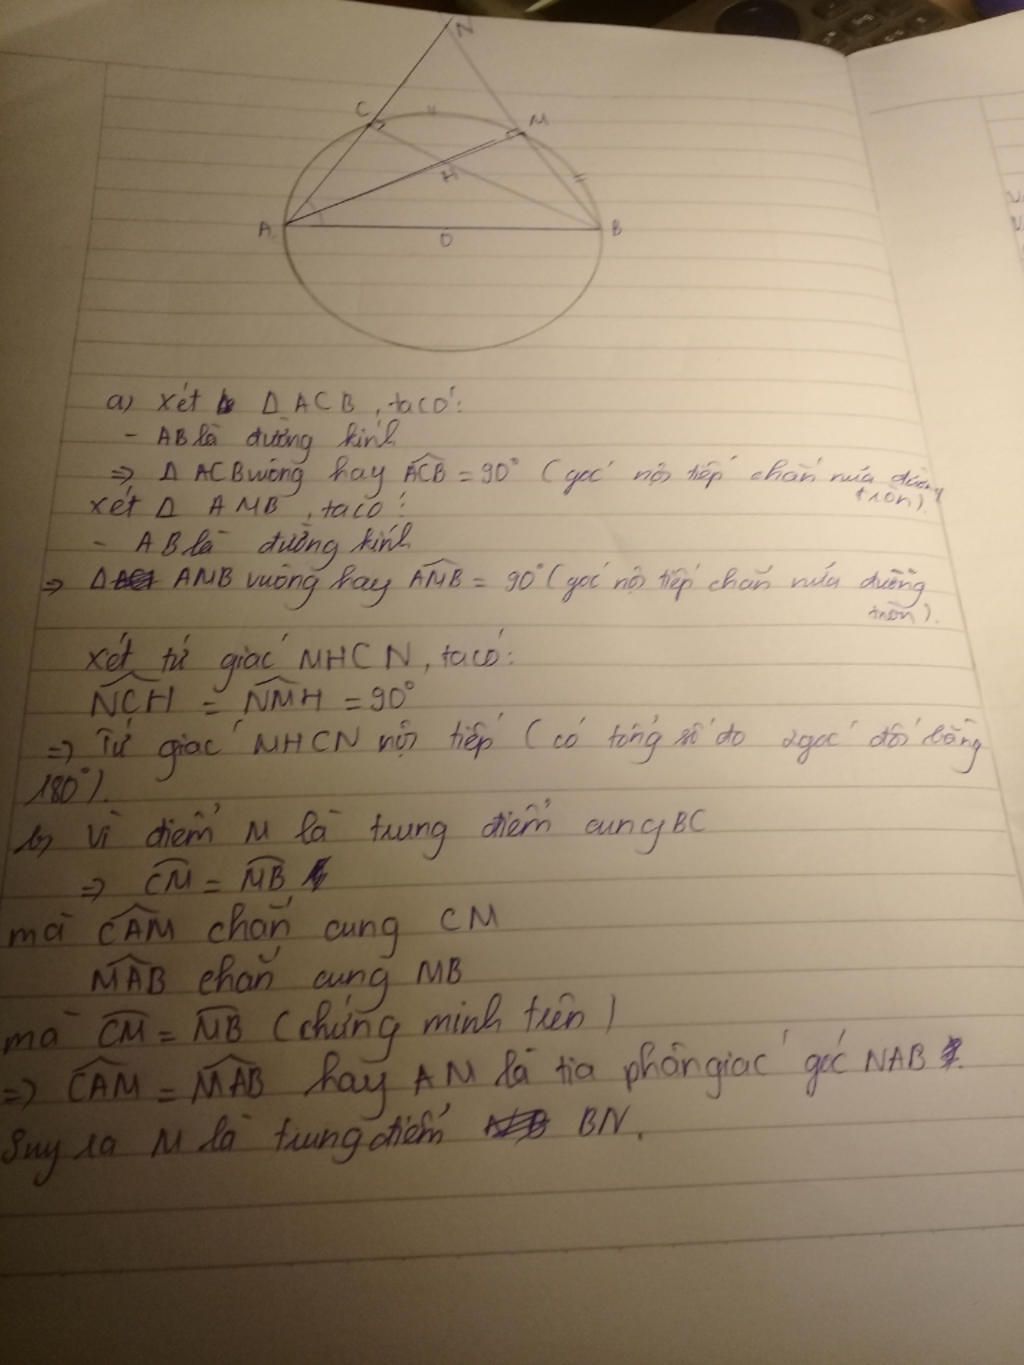 N
C
M
H
A
O
B
a) Xét Δ ACB, ta có:
- AB là đường kính
=> Δ ACB vuông hay ACB = 90° (góc nội tiếp chắn nửa đường
tròn).
xét Δ AMB, ta có:
- AB là đường kính
=> Δ AMB vuông hay AMB = 90° (góc nội tiếp chắn nửa đường
tròn).
Xét tứ giác MHCN, ta có:
NCH = NMH = 90°
=> Tứ giác MHCN nội tiếp (có tổng số đo 2 góc đối bằng
180°).
b, Vì điểm M là trung điểm cung BC
=> CM = MB
mà CAM chắn cung CM
MAB chắn cung MB
mà CM = MB (chứng minh trên)
=> CAM = MAB hay AM là tia phân giác góc NAB
Suy ra M là trung điểm BN.